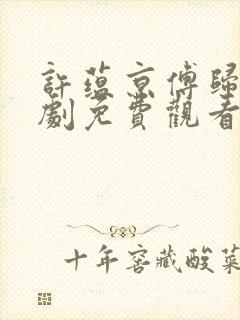 許蘊京傅歸
劇免費觀看
十年窖藏酸菜